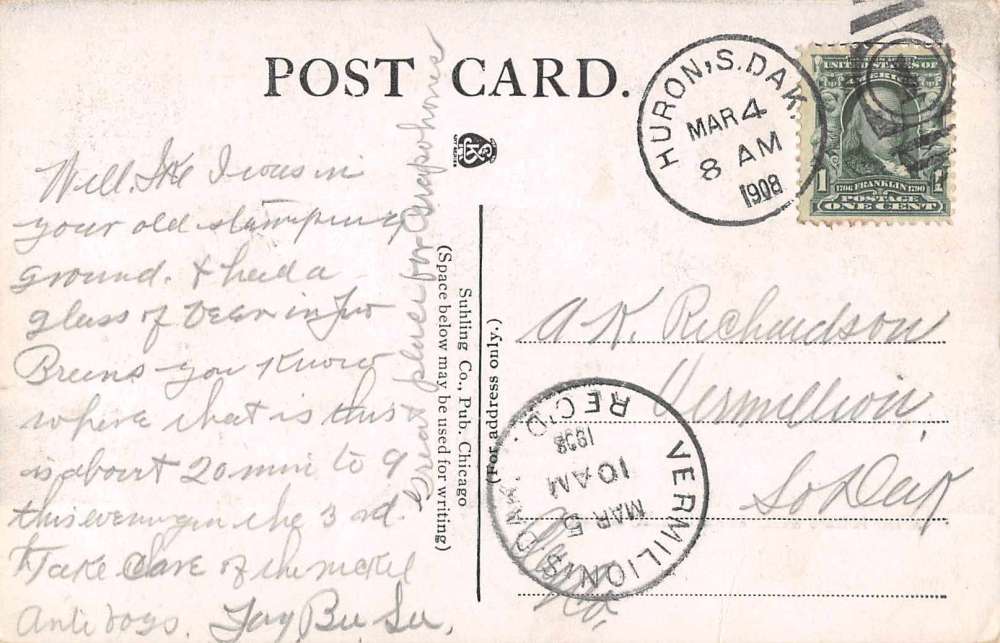 POST CARD.
HURON, S. DAK.
MAR 4
8 AM
1908
UNITED STATES OF AMERICA
1706 FRANKLIN 1790
1 1
POSTAGE
ONE CENT
Well. Ike I was in
your old stamping
ground. & had a
glass of Beer in
Breens you know
where that is this
is about 20 min to 9
this evening the 3 rd.
Take Care of the
Anti Dogs.
Great place for
Suhling Co., Pub. Chicago
(Space below may be used for writing)
(For address only.)
A K. Richardson
Vermillion,
So Dak
VERMILION, S. DAK.
MAR 5
10 AM
1908
REC'D.